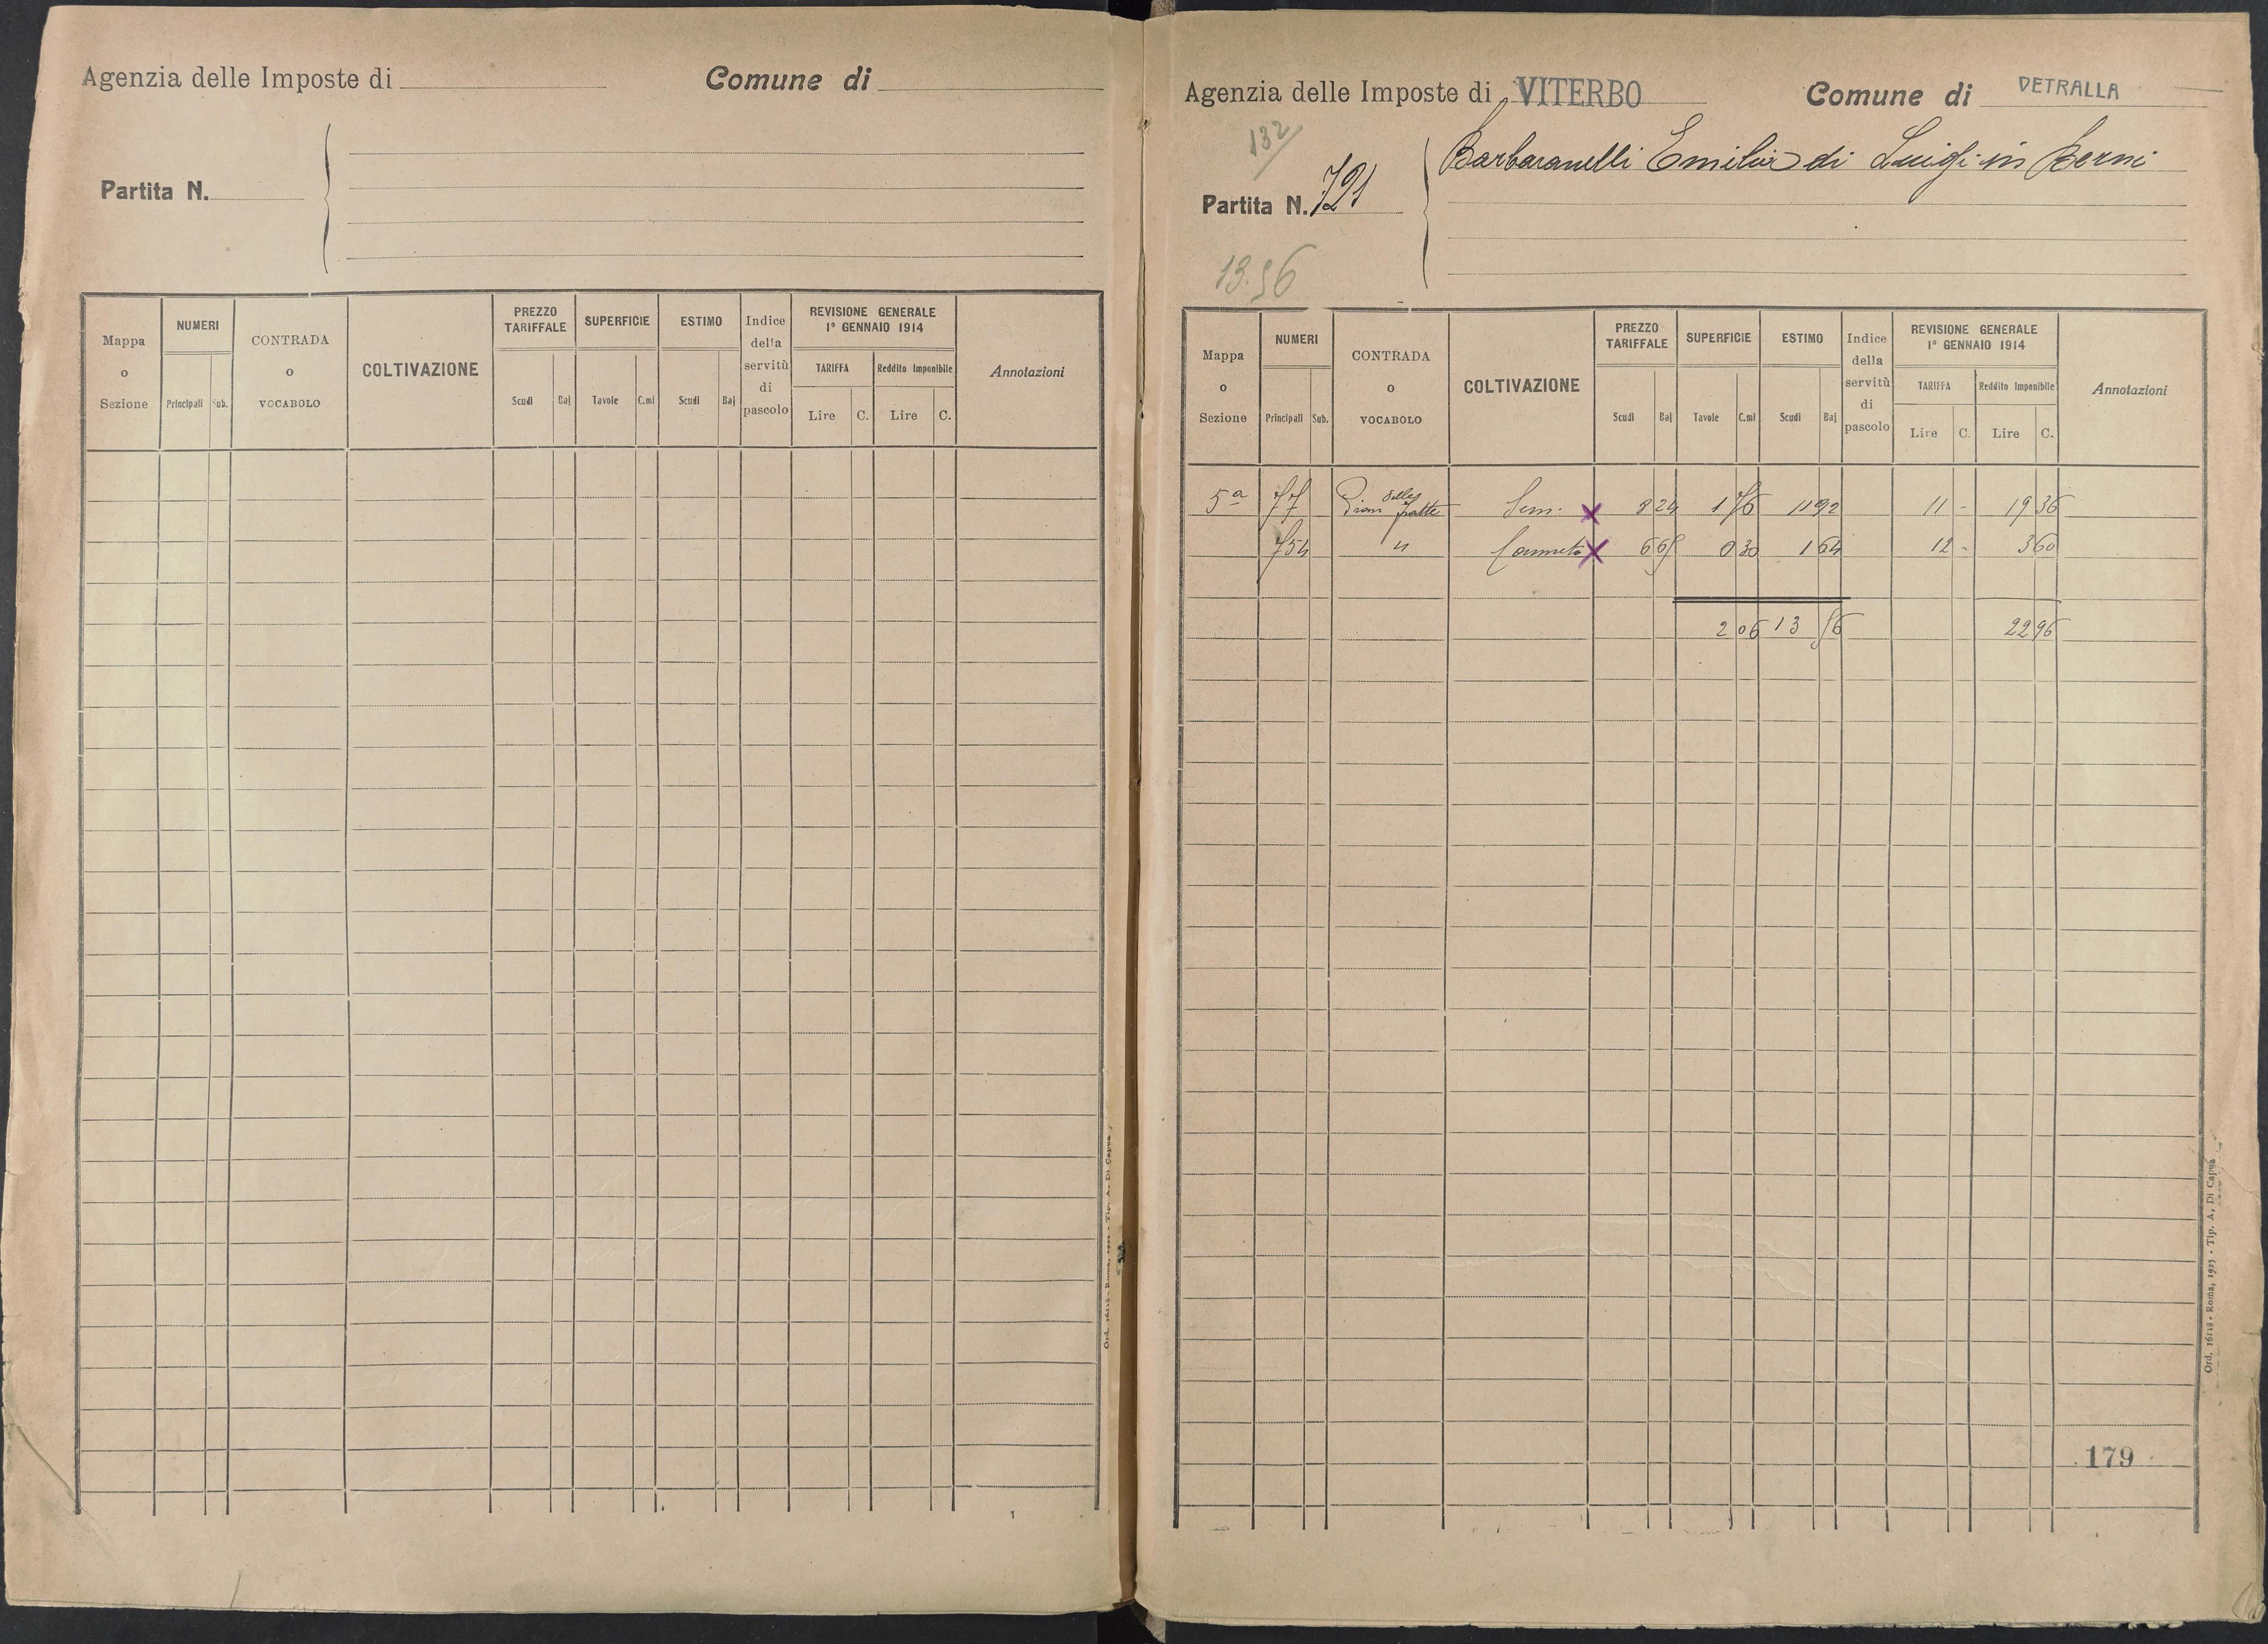 Agenzia delle Imposte di Comune di
Partita N.
Mappa o Sezione NUMERI Principali Sub. CONTRADA o VOCABOLO COLTIVAZIONE PREZZO TARIFFALE Scudi Baj SUPERFICIE Tavole C.mi ESTIMO Scudi Baj Indice della servitù di pascolo REVISIONE GENERALE 1° GENNAIO 1914 TARIFFA Lire C. Reddito Imponibile Lire C. Annotazioni
Agenzia delle Imposte di VITERBO Comune di VETRALLA
132
Barbaranelli Emilia di Luigi in Berni
Partita N. 721
13.56
Mappa o Sezione NUMERI Principali Sub. CONTRADA o VOCABOLO COLTIVAZIONE PREZZO TARIFFALE Scudi Baj SUPERFICIE Tavole C.mi ESTIMO Scudi Baj Indice della servitù di pascolo REVISIONE GENERALE 1° GENNAIO 1914 TARIFFA Lire C. Reddito Imponibile Lire C. Annotazioni
5a 77 Pian delle Fratte Sem. x 8 24 1 76 11 92 11 - 19 36
754 " Canneto x 6 65 0 30 1 64 12 - 3 60
2 06 13 56 22 96
179
Ord. 16118 - Roma, 1923 - Tip. A. Di Capua